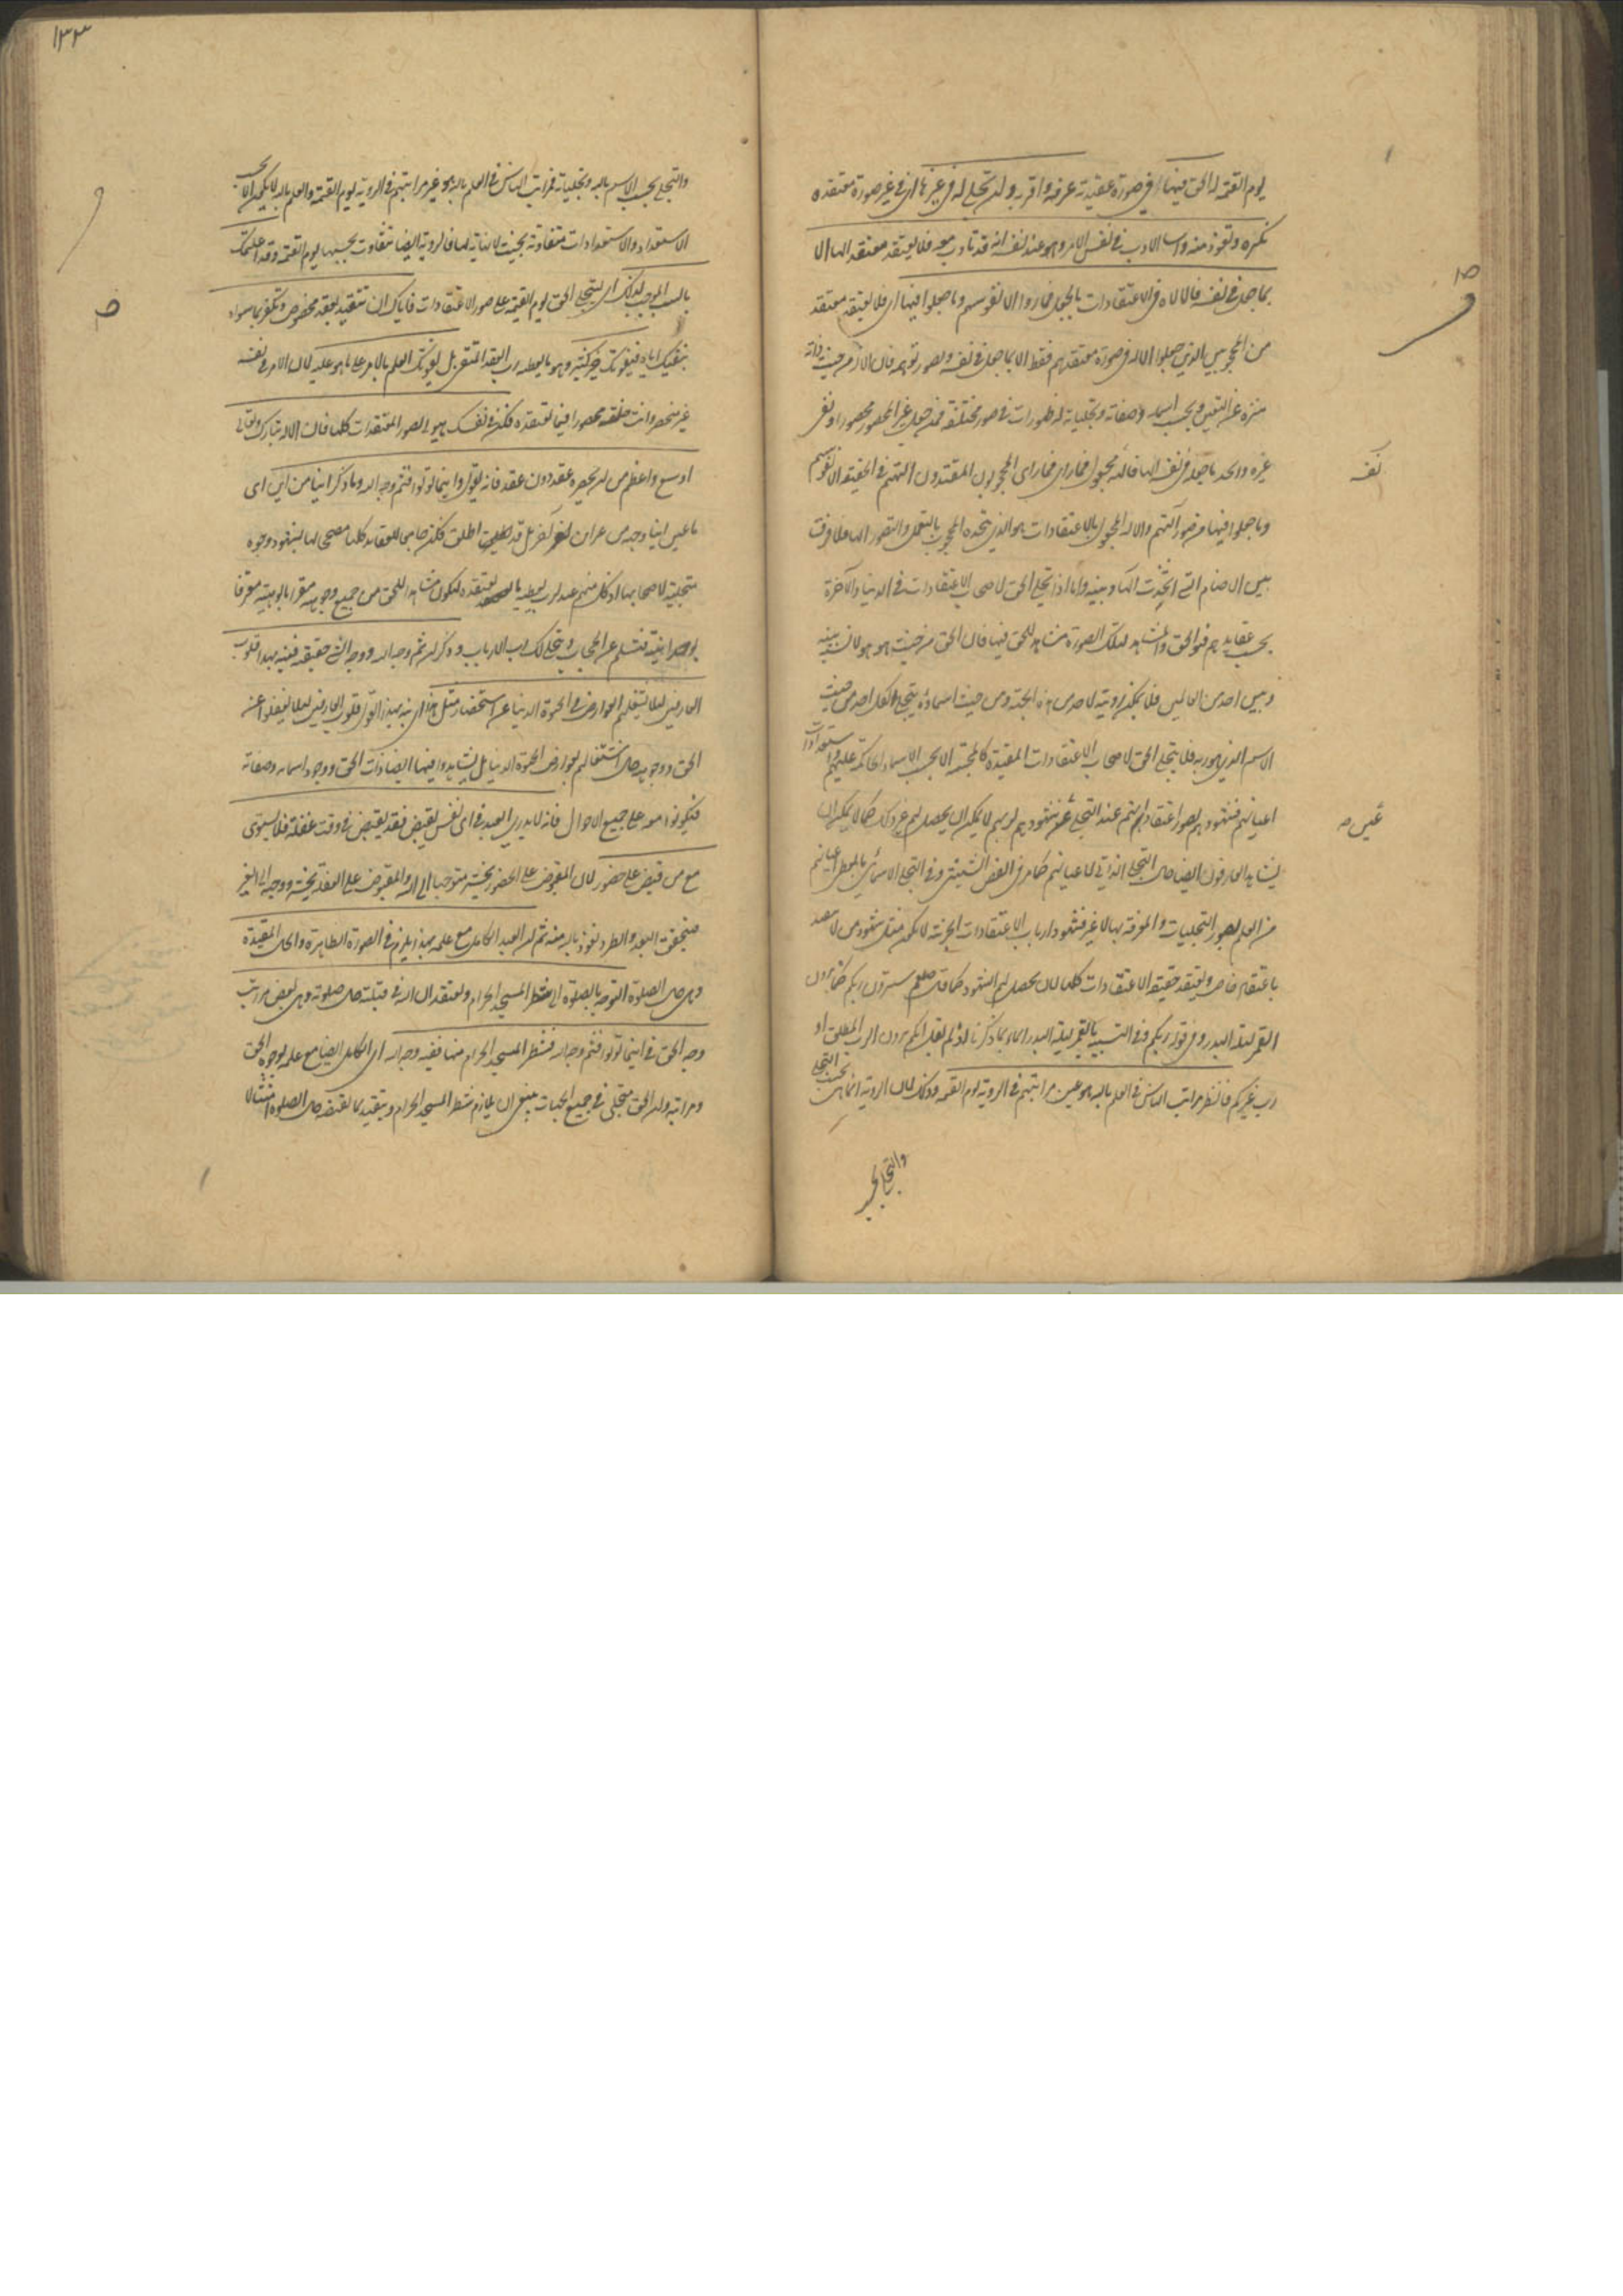 يوم القيمة له الحق فيها اي في صورة عقيدته عرفه واقر به ولان تجلى له في غيرها اي في غير صورة معتقده
نكره وتعوذ منه واساء الادب في نفس الامر وهو عند نفسه انه قد تأدب معه فلا يعتقد معتقد الها الا
بما جعل في نفسه فالاله في الاعتقادات بالجعل فما رأوا الا نفوسهم وما جعلوا فيها اي فلا يعتقد معتقد
من المحجوبين الذين جعلوا الاله في صورة معتقدهم فقط الا بما جعل في نفسه وتصور بوهمه فان الاله من حيث ذاته
منزه عن التعين وبحسب اسمائه وصفاته وتجلياته له ظهورات في صور مختلفة فمن جعل غير المحصور محصورا ونفى
غيره واتخذ ما جعله في نفسه الها فالهه مجعول فما رأى المحجوبون المعتقدون الهتهم في الحقيقة الا نفوسهم
نفسه
وما جعلوا فيها من صور آلهتهم والاله المجعول بالاعتقادات هو الذي يتخذه المحجوب بالتعمل والتصور الها فلا فرق
بين الاصنام التي اتخذت الها وبينه واما اذا تجلى الحق لاصحاب الاعتقادات في الدنيا والآخرة
بحسب عقايدهم فهو الحق والمشاهد لتلك الصورة مشاهد للحق فيها فان الحق من حيث هو هو لا نسبة بينه
وبين احد من العالمين فلا يمكن رؤيته لاحد من هذه الجهة ومن حيث اسمائه يتجلى لكل احد من حيث
الاسم الذي هو ربه فلا يتجلى الحق لاصحاب الاعتقادات المقيدة كالمجسمة الا بحسب الاسماء الحاكمة عليهم واستعدادات
اعيانهم فشهودهم لصور اعتقاداتهم عند التجلي عين شهودهم لربهم لا يمكن ان يحصل لهم غير ذلك كما لا يمكن ان
عين صح
يشاهد العارفون ايضا حال التجلي الذاتي الا اعيانهم كما مر في الفص الشيثي وفي التجلي الاسمائي ما يعطي اعيانهم
من العلم بصور التجليات والمعرفة بها لا غير فشهود ارباب الاعتقادات الجزئية لا يكون مثل شهود من لا يتقيد
باعتقاد خاص ويعتقد حقيقة الاعتقادات كلها لان يحصل لهم الشهود كما قال صلعم سترون ربكم كما ترون
القمر ليلة البدر وفي قوله ربكم وفي التشبيه بالقمر ليلة البدر ايماء بما ذكرنا اذ لم يقل انكم ترون الرب المطلق او
رب غيركم فانظر مراتب الناس في العلم بالله هو عين مراتبهم في الرؤية يوم القيمة وذلك لان الرؤية انما هي بحسب التجلي
والتجلي بحسب
١٣٣
والتجلي بحسب الاسم بالله وتجلياته فمراتب الناس في العلم بالله هو عين مراتبهم في الرؤية يوم القيمة والعلم بالله لا يكون الا بحسب
الاستعداد والاستعدادات متفاوتة بحيث لا نهاية لها فالرؤية ايضا تتفاوت بحسبها يوم القيمة وقد اعلمتك
بالسبب الموجب لذلك اي لتجلي الحق يوم القيمة على صور الاعتقادات فاياك ان تتقيد بعقد مخصوص وتكفر بما سواه
بنفيك اياه فيفوتك خير كثير وهو ما يعطيه رب العقد المنفي بل يفوتك العلم بالامر على ما هو عليه لان الامر في نفسه
غير منحصر وانت جعلته محصورا فيما تعتقده فكن في نفسك هيولى لصور المعتقدات كلها فان الاله تبارك وتعالى
اوسع واعظم من ان يحصره عقد دون عقد فانه يقول واينما تولوا فثم وجه الله وما ذكر اينا من اين اي
ما عين اينا وجهه من غير اين آخر بل قد اطلق فكن جامعا للعقايد كلها مصححا لها لشهود وجوه
متجلية لاصحابها اذ كل منهم عبد لرب يعطيه ما يعتقده لتكون مشاهدا للحق من جميع وجوهه مقرا بالوهيته معترفا
بوحدانيته فتسلم عن الحجاب ويتجلى لك رب الارباب وذكر ان ثم وجه الله ووجه الشيء حقيقته فنبه بهذا قلوب
العارفين لئلا تشغلهم العوارض في الحيوة الدنيا عن استحضار مثل هذا اي نبه بهذا القول قلوب العارفين لئلا يغفلوا عن
الحق ووجوهه حال اشتغالهم بعوارض الحيوة الدنيا بل يشاهدوا فيها ايضا ذات الحق ووجوه اسمائه وصفاته
فيكونوا معه على جميع الاحوال فانه لا يدري العبد في اي نفس يقبض فقد يقبض في وقت غفلة فلا يستوي
مع من قبض على حضور لان المقبوض على الحضور يحشر متوجها الى الله والمقبوض على الغفلة يحشر ووجهه الى الغير
فيتحقق البعد والطرد نعوذ بالله منه ثم ان العبد الكامل مع علمه بهذا يلزم في الصورة الظاهرة والحال المقيدة
وهي حال الصلوة التوجه بالصلوة الى شطر المسجد الحرام ويعتقد ان الله في قبلته حال صلوته وهي بعض مراتب
وجه الحق في اينما تولوا فثم وجه الله فشطر المسجد الحرام منها ففيه وجه الله اي الكامل ايضا مع علمه بوجوه الحق
ومراتبه وان الحق متجلي في جميع الجهات ينبغي ان يلازم شطر المسجد الحرام ويتقيد بما يقتضيه حال الصلوة امتثالا